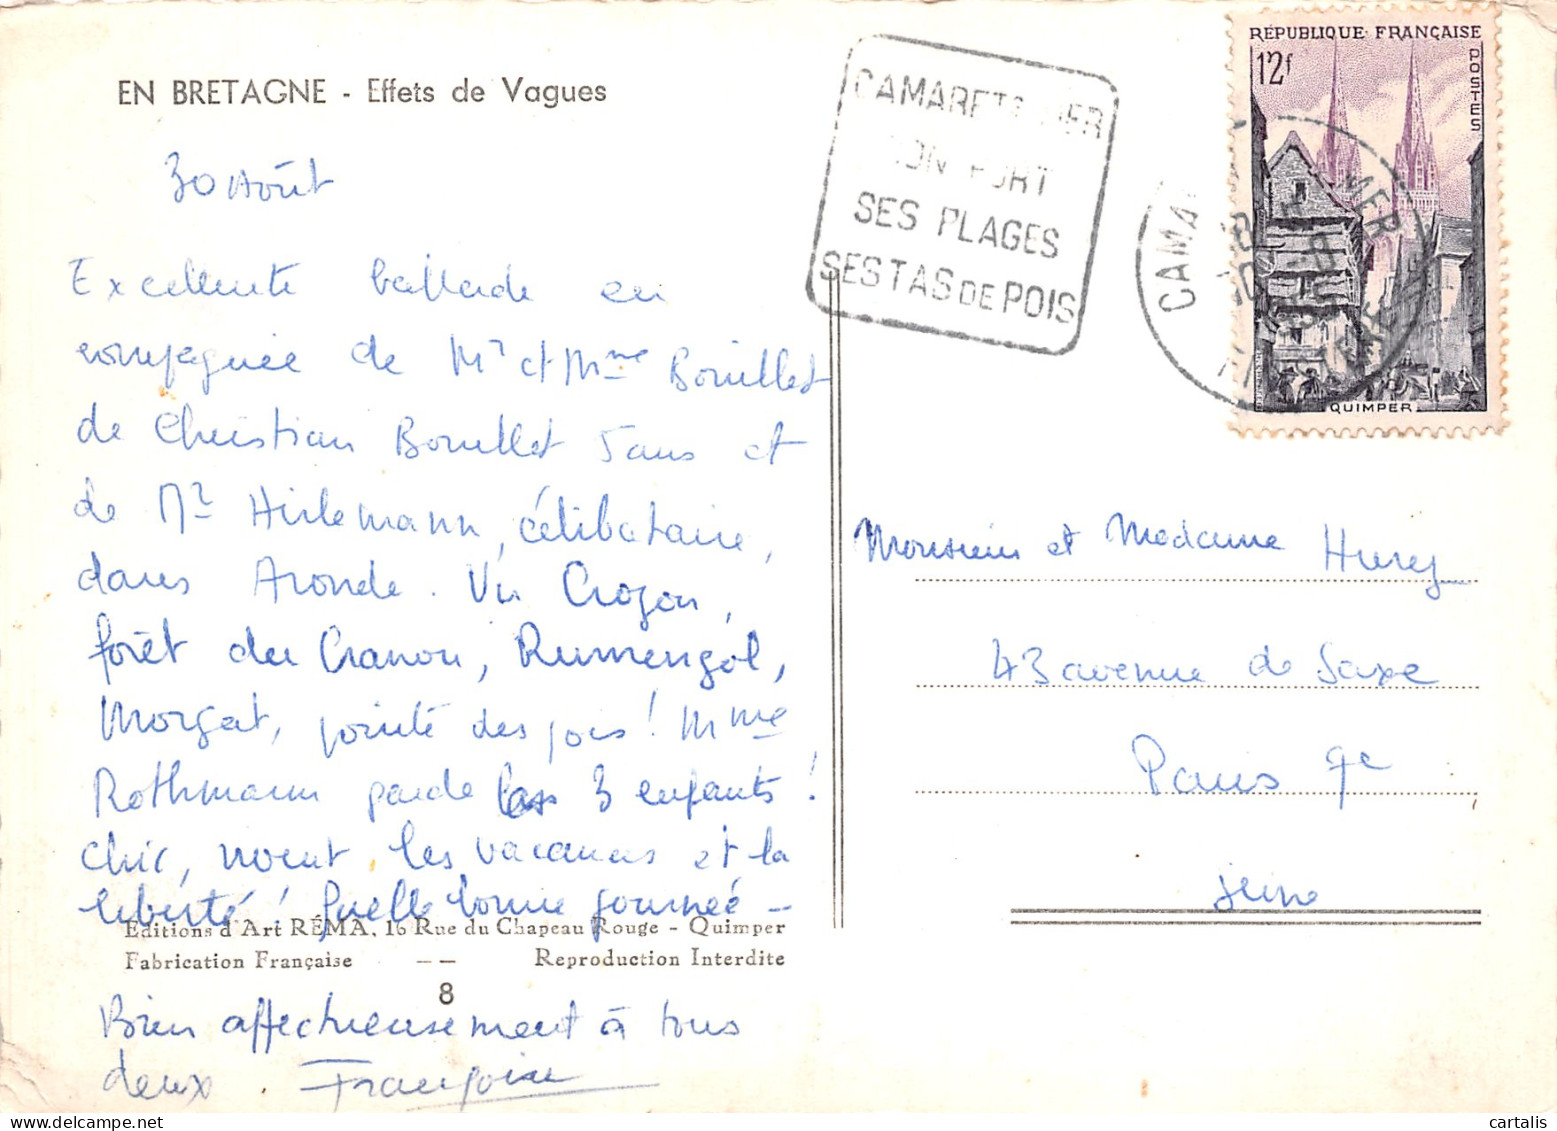 EN BRETAGNE - Effets de Vagues
30 Août
Excellente ballade en
compagnie de Mr et Mme Bouillet
de Christian Bouillet 5 ans et
de Mr Hirlemann, célibataire,
dans Aronde. Vu Crozon,
forêt du Cranou, Rumengol,
Morgat, pointe des pois! Mme
Rothmann garde les 3 enfants!
chic, vivent les vacances et la
liberté! Quelle bonne journée -
Editions d'Art RÉMA, 16 Rue du Chapeau Rouge - Quimper
Fabrication Française -- Reproduction Interdite
8
Bien affectueusement à tous
deux. Françoise
CAMARET MER
SON PORT
SES PLAGES
SES TAS DE POIS
RÉPUBLIQUE FRANÇAISE
12f
POSTES
QUIMPER
CAMA MER
Monsieur et Madame Hurey
43 avenue de Saxe
Paris 7e
Seine
cartalis